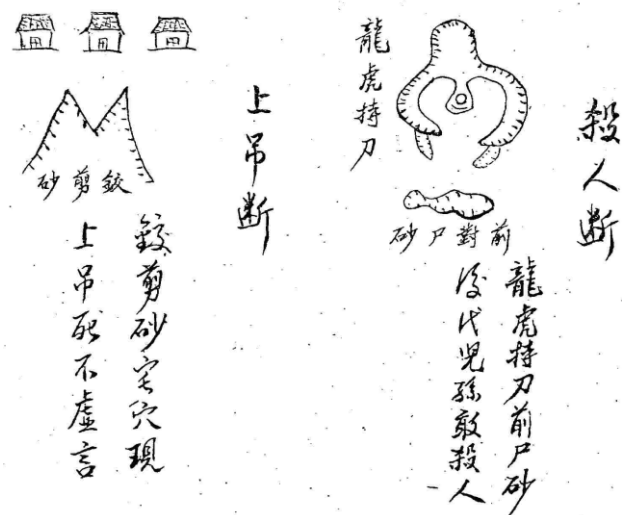 殺人断
龍虎持刀
前對尸砂
龍虎持刀前尸砂
後代児孫敢殺人
上吊断
鉸剪砂
鉸剪砂宅穴現
上吊死不虛言